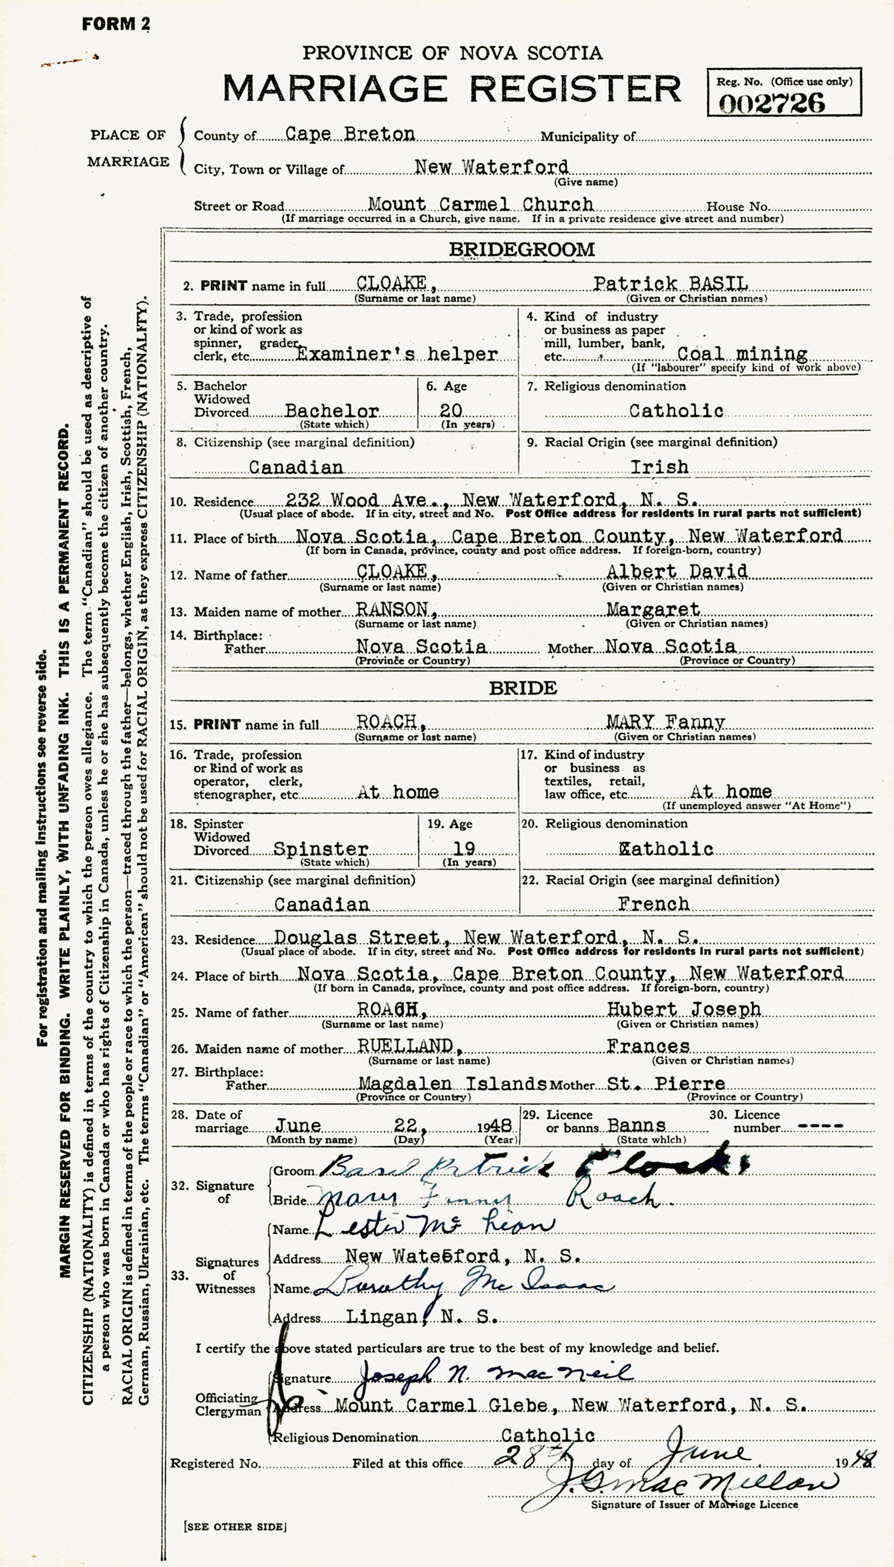 FORM 2
PROVINCE OF NOVA SCOTIA
MARRIAGE REGISTER
Reg. No. (Office use only)
002726
PLACE OF MARRIAGE
County of Cape Breton Municipality of
City, Town or Village of New Waterford
(Give name)
Street or Road Mount Carmel Church House No.
(If marriage occurred in a Church, give name. If in a private residence give street and number)
BRIDEGROOM
2. PRINT name in full CLOAKE, Patrick BASIL
(Surname or last name) (Given or Christian names)
3. Trade, profession
or kind of work as
spinner, grader,
clerk, etc. Examiner's helper
4. Kind of industry
or business as paper
mill, lumber, bank,
etc. Coal mining
(If "labourer" specify kind of work above)
5. Bachelor
Widowed
Divorced Bachelor
(State which)
6. Age
20
(In years)
7. Religious denomination
Catholic
8. Citizenship (see marginal definition)
Canadian
9. Racial Origin (see marginal definition)
Irish
10. Residence 232 Wood Ave., New Waterford, N. S.
(Usual place of abode. If in city, street and No. Post Office address for residents in rural parts not sufficient)
11. Place of birth Nova Scotia, Cape Breton County, New Waterford
(If born in Canada, province, county and post office address. If foreign-born, country)
12. Name of father CLOAKE, Albert David
(Surname or last name) (Given or Christian names)
13. Maiden name of mother RANSON, Margaret
(Surname or last name) (Given or Christian names)
14. Birthplace:
Father Nova Scotia Mother Nova Scotia
(Province or Country) (Province or Country)
BRIDE
15. PRINT name in full ROACH, MARY Fanny
(Surname or last name) (Given or Christian names)
16. Trade, profession
or kind of work as
operator, clerk,
stenographer, etc. At home
17. Kind of industry
or business as
textiles, retail,
law office, etc. At home
(If unemployed answer "At Home")
18. Spinster
Widowed
Divorced Spinster
(State which)
19. Age
19
(In years)
20. Religious denomination
Catholic
21. Citizenship (see marginal definition)
Canadian
22. Racial Origin (see marginal definition)
French
23. Residence Douglas Street, New Waterford, N. S.
(Usual place of abode. If in city, street and No. Post Office address for residents in rural parts not sufficient)
24. Place of birth Nova Scotia, Cape Breton County, New Waterford
(If born in Canada, province, county and post office address. If foreign-born, country)
25. Name of father ROACH, Hubert Joseph
(Surname or last name) (Given or Christian names)
26. Maiden name of mother RUELLAND, Frances
(Surname or last name) (Given or Christian names)
27. Birthplace:
Father Magdalen Islands Mother St. Pierre
(Province or Country) (Province or Country)
28. Date of
marriage June 22, 1948
(Month by name) (Day) (Year)
29. Licence
or banns Banns
(State which)
30. Licence
number ----
32. Signature of
Groom Basil Patrick Cloake
Bride Mary Fanny Roach.
33. Signatures of Witnesses
Name Lester Mc Lean
Address New Wateeford, N. S.
Name Dorothy Mc Isaac
Address Lingan, N. S.
I certify the above stated particulars are true to the best of my knowledge and belief.
Officiating Clergyman
Signature Joseph N. MacNeil
Address Mount Carmel Glebe, New Waterford, N. S.
Religious Denomination Catholic
Registered No. Filed at this office 28th day of June 1948
J. G. MacMillan
Signature of Issuer of Marriage Licence
[SEE OTHER SIDE]
For registration and mailing instructions see reverse side.
MARGIN RESERVED FOR BINDING. WRITE PLAINLY, WITH UNFADING INK. THIS IS A PERMANENT RECORD.
CITIZENSHIP (NATIONALITY) is defined in terms of the country to which the person owes allegiance. The term "Canadian" should be used as descriptive of
a person who was born in Canada or who has rights of Citizenship in Canada, unless he or she has subsequently become the citizen of another country.
RACIAL ORIGIN is defined in terms of the people or race to which the person—traced through the father—belongs, whether English, Irish, Scottish, French,
German, Russian, Ukrainian, etc. The terms "Canadian" or "American" should not be used for RACIAL ORIGIN, as they express CITIZENSHIP (NATIONALITY).